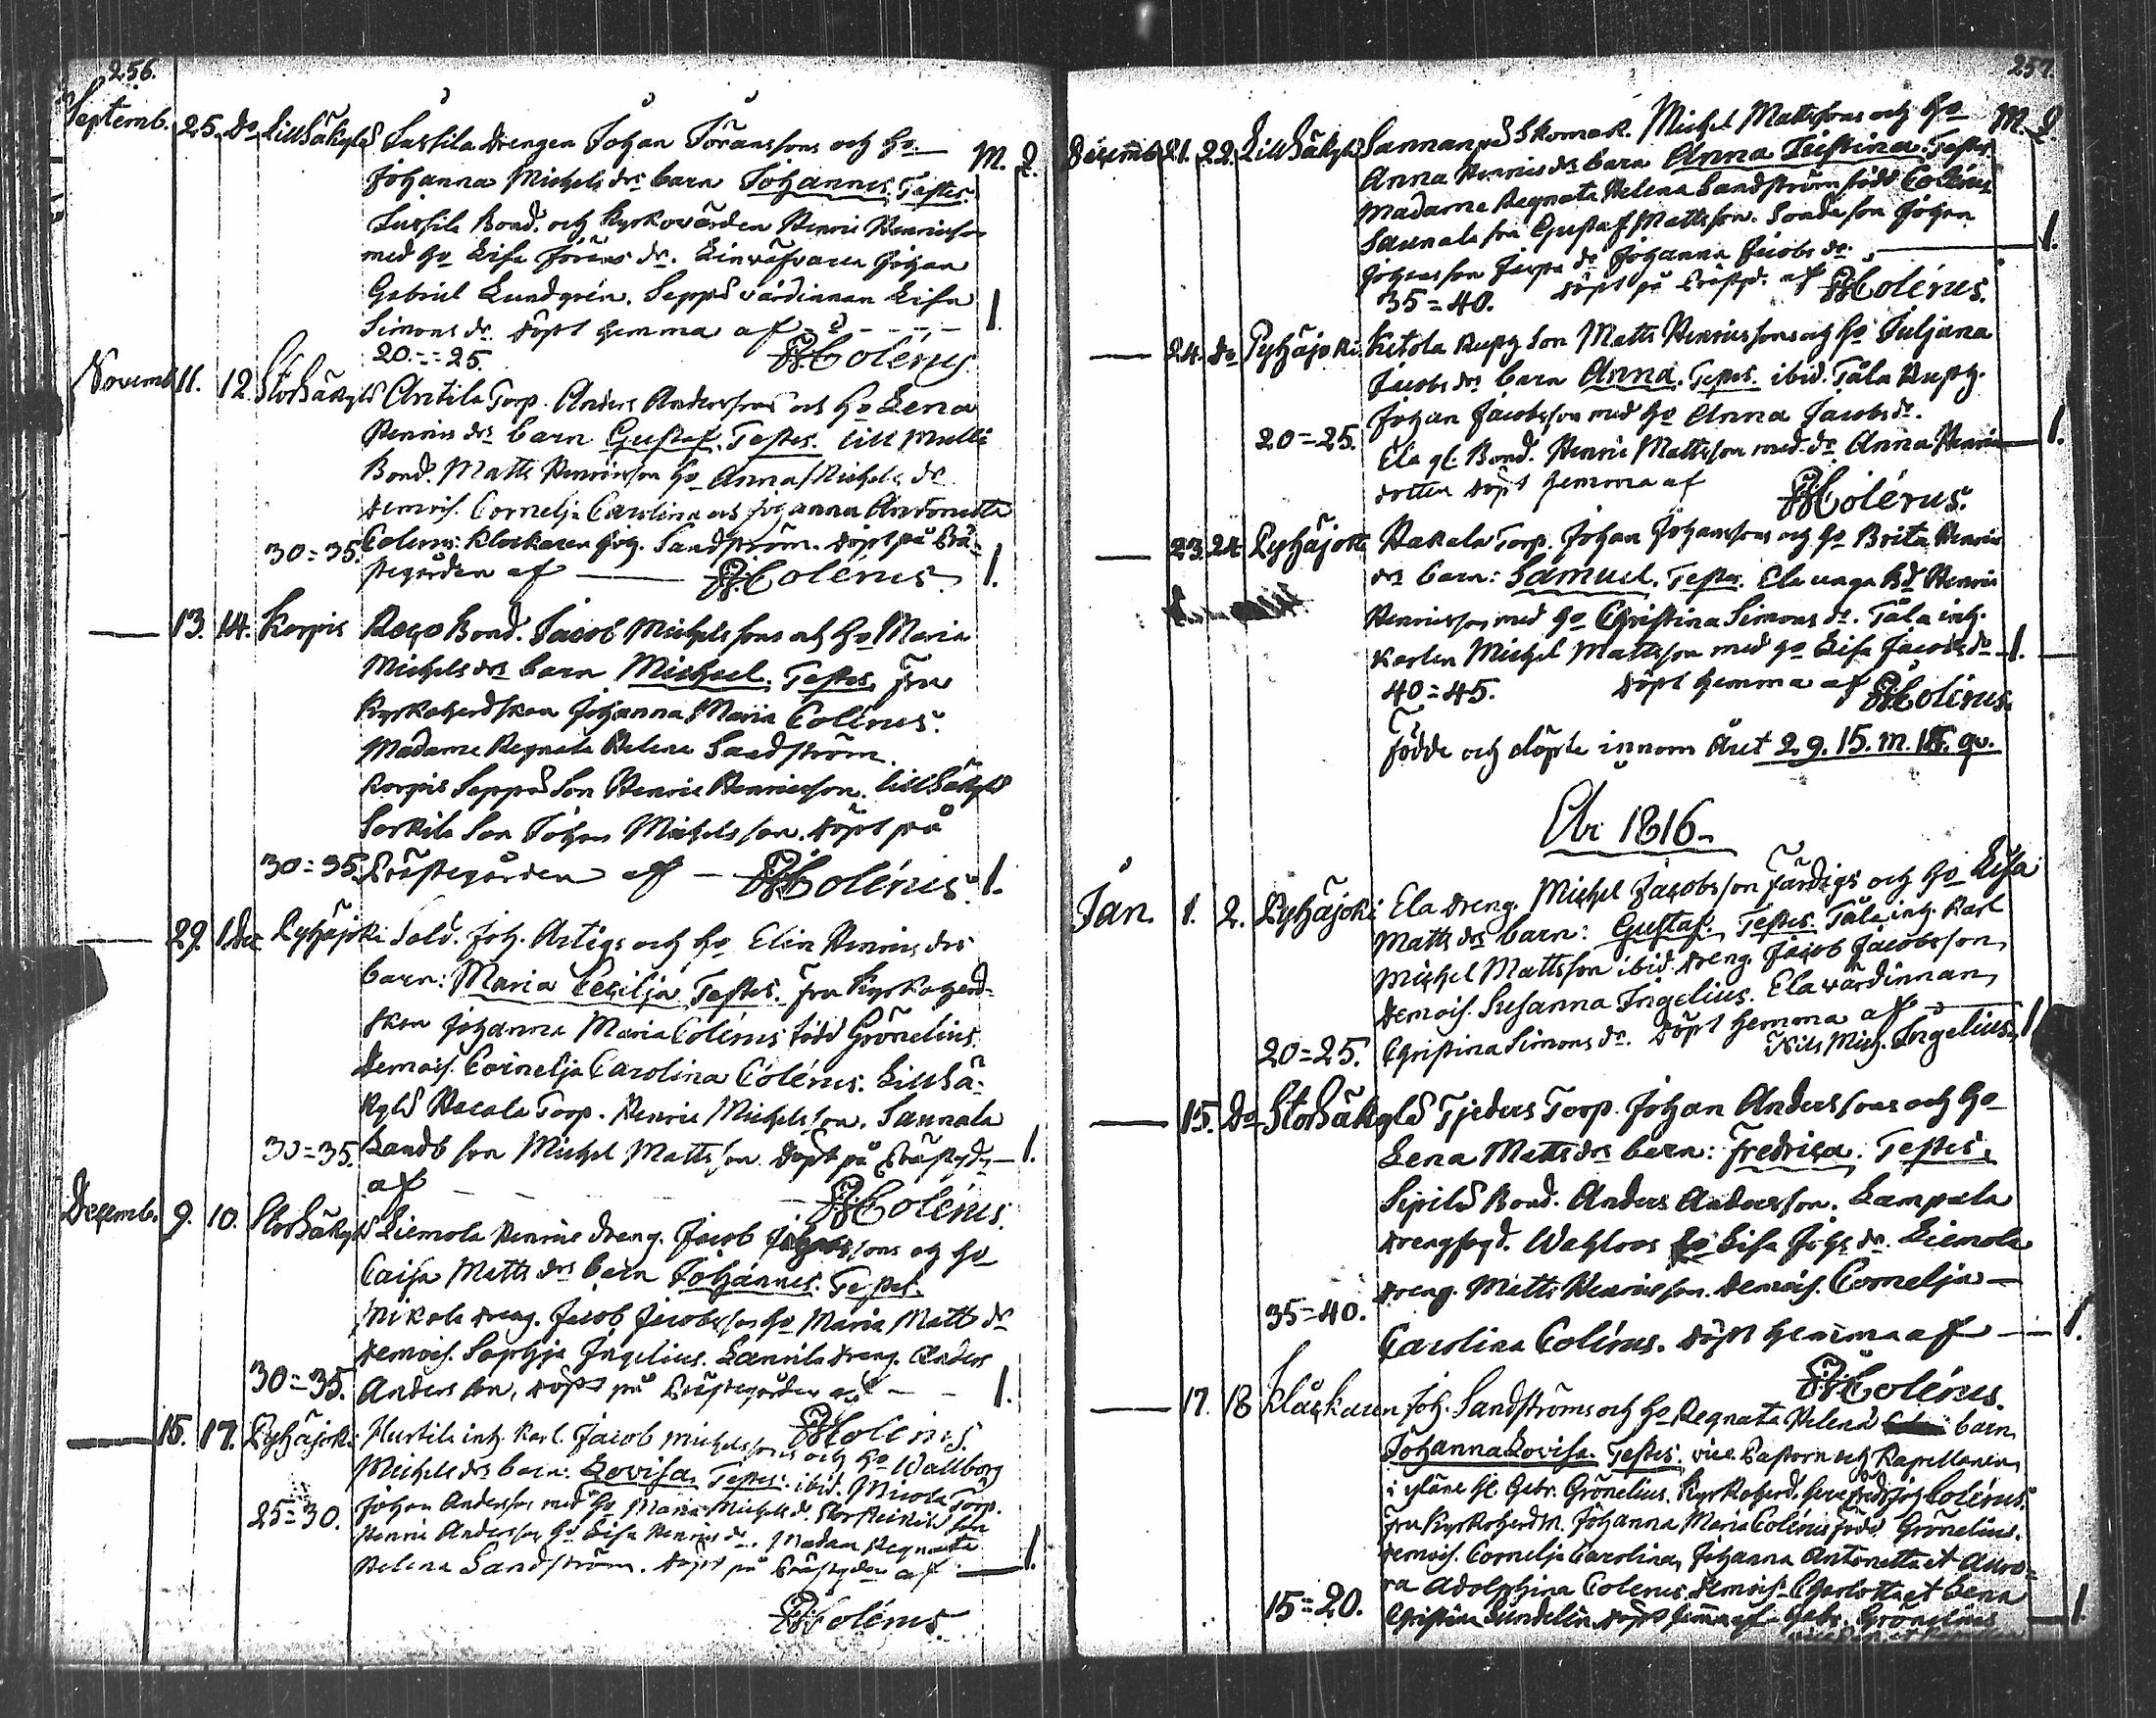 256.
Septemb. 25. Do LillSäkylä Sassila drengen Johan Göranssons och ho
M. Q.
Johanna Michels drs barn Johannes. Testes.
Sussila Bond. och Kyrkovärden Henric Henricsson
med ho Lisa Jörens dr. Linväfvaren Johan
Gabriel Lundgrén. Seppä värdinnan Lisa
Simons dr. döpt hemma af - - - 1.
20=25. Colérus.
Novemb. 11. 12. StorSäkylä Antila Torp. Anders Anderssons och ho Lena
Henrics drs barn Gustaf. Testes. Lill
Bond. Matts Henricsson ho Anna Michels dr
demois. Cornelja Carolina och Johanna Antonetta
Colerus. Klockaren Joh. Sandström. döpt på Prä-
30=35. stegården af — Colérus 1.
— 13. 14. Korpis Bond. Jacob Michelssons och ho Maria
Michels drs barn Michael. Testes. Fru
Kyrkoherdskan Johanna Maria Colérus.
Madame Regnata Helena Sandström.
Korpis Seppä Son Henric Henricsson. LillSäkylä
Sorkila Son Johan Michelsson. döpt på
30=35. Prästegården af — Colérus. 1.
— 29. 1 Dec Pyhäjoki Sold. Joh. Artigs och ho Elin Henrics drs
barn: Maria Cecilja. Testes. Fru Kyrkoherd-
skan Johanna Maria Colérus född Grönelius.
Demois. Cornelja Carolina Colérus. LillSä-
kylä Torp. Henric Michelsson. Sannala
30=35. Landb son Michel Mattsson. döpt på Prästgdn — 1.
af — Colérus.
Decemb. 9. 10. StorSäkylä Liemola Henrics dreng. Jacob sons och ho
Caisa Matts drs barn Johannes. Testes.
Mikola dreng. Jacob Jacobsson ho Maria Matts dr
demois. Sophja Ingelius. dreng. Anders
30=35. Andersson, döpt på Prästegården af — 1.
Colérus.
— 15. 17. Pyhäjoki Hurtila inh. Karl. Jacob Michelssons och ho Wallborg
Michels drs barn: Lovisa. Testes. ibid. Micola Torp.
Johan Andersson med ho Maria Michels dr. son
25=30. Henric Andersson ho Lisa Henrics dr. Madam Regnata
Helena Sandström. döpt på Prästgden af — 1.
Colérus
257
Decemb 21. 22. LillSäkylä Sannanpä Skomak. Michel Mattssons och ho
M. Q.
Anna Henrics drs barn Anna Christina. Testes
Madame Regnata Helena Sandström född Colérus
Sannala son Gustaf Mattsson. Sonason Johan
Johansson do Johanna Jacobs dr. — 1.
35=40. döpt på Prästgd. af Colérus.
— 24. Do Pyhäjoki Ketola Rusth Son Matts Henricssons och ho Juljana
Jacobs drs barn Anna. Testes. ibid. Tåla Rusth.
Johan Jacobsson med ho Anna Jacobs dr.
20=25. Ela gl. Bond. Henric Mattsson med do Anna Henrics — 1.
dotter döpt hemma af Colérus.
— 23. 24. Pyhäjoki Hakala Torp. Johan Johanssons och ho Brita Henrics
drs barn: Samuel. Testes. Ela unga Bd Henric
Henricsson med ho Christina Simons dr. Tåla inh.
Karlen Michel Mattsson med ho Lisa Jacobs dr — 1.
40=45. döpt hemma af Colérus.
Födde och döpte innom Året 29. 15. m. 14. qv.
År 1816.
Jan. 1. 2. Pyhäjoki Ela dreng. Michel Jacobsson Färdigs och ho Lisa
Matts drs barn: Gustaf. Testes. Tåla inh. Karl
Michel Mattsson ibid. dreng. Jacob Jacobsson,
demois. Susanna Ingelius. Ela värdinnan
Christina Simons dr. döpt hemma af — 1
20=25. Nils Mich. Ingelius.
— 15. Do StorSäkylä Tjeders Torp. Johan Anderssons och ho
Lena Matts drs barn: Fredrica. Testes.
Sipilä Bond. Anders Andersson. Lampala
drengfogd. Wahlroos ho Lisa Johs dr. Liemola
dreng. Matts Henricsson. demois. Cornelja
35=40. Carolina Colérus. döpt hemma af — 1.
Colérus.
— 17. 18 Klåckaren Joh. Sandströms och ho Regnata Helena barn
Johanna Lovisa. Testes. vice Pastorn och Kapellanen
i yläne Hl Gabr. Grönelius. Kyrkoherd. Herr Colérus.
Fru Kyrkoherdsk. Johanna Maria Colérus född Grönelius.
demois. Cornelja Carolina, Johanna Antonetta et Auro-
ra Adolphina Colerus. demois. Charlotta et Lena
15=20. Christina Sundelin. döpt hemma af Gabr. Grönelius — 1